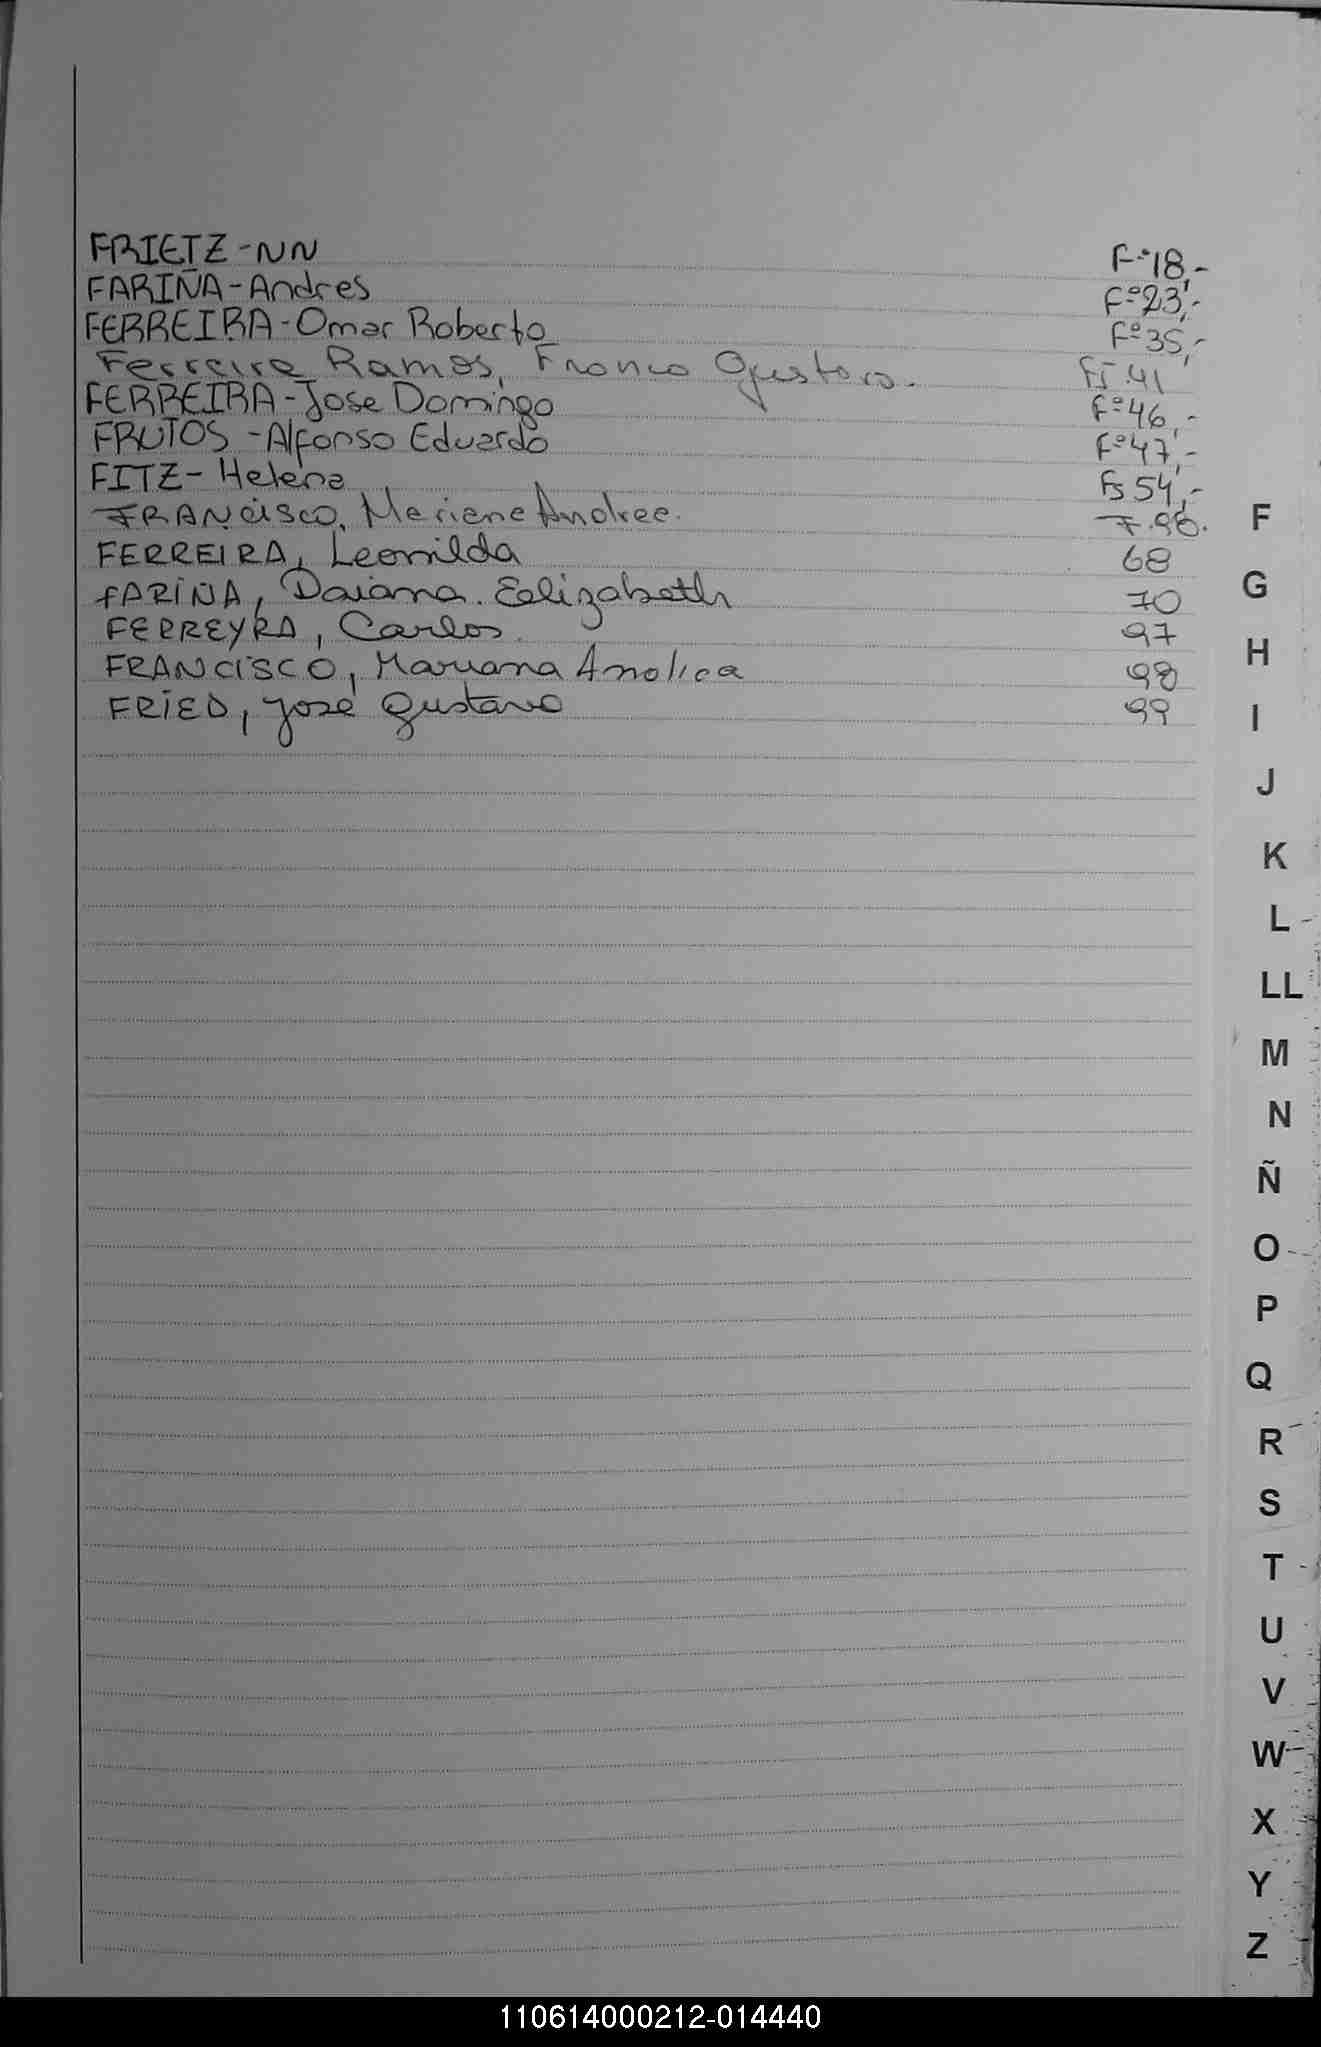 FRIETZ - NN F-º18.-
FARIÑA - Andres Fº23,-
FERREIRA - Omar Roberto Fº35,-
Ferreira Ramos, Franco Gustavo. Fs.41
FERREIRA - Jose Domingo Fº46,-
FRUTOS - Alfonso Eduardo Fº47,-
FITZ - Helena Fs 54,-
FRANCISCO, Mariana Andrea. F.98.
FERREIRA, Leonilda 68
FARIÑA, Daiana. Eelizabeth 70
FERREYRA, Carlos. 97
FRANCISCO, Mariana Andrea 98
FRIED, José Gustavo 99
F
G
H
I
J
K
L
LL
M
N
Ñ
O
P
Q
R
S
T
U
V
W
X
Y
Z
110614000212-014440